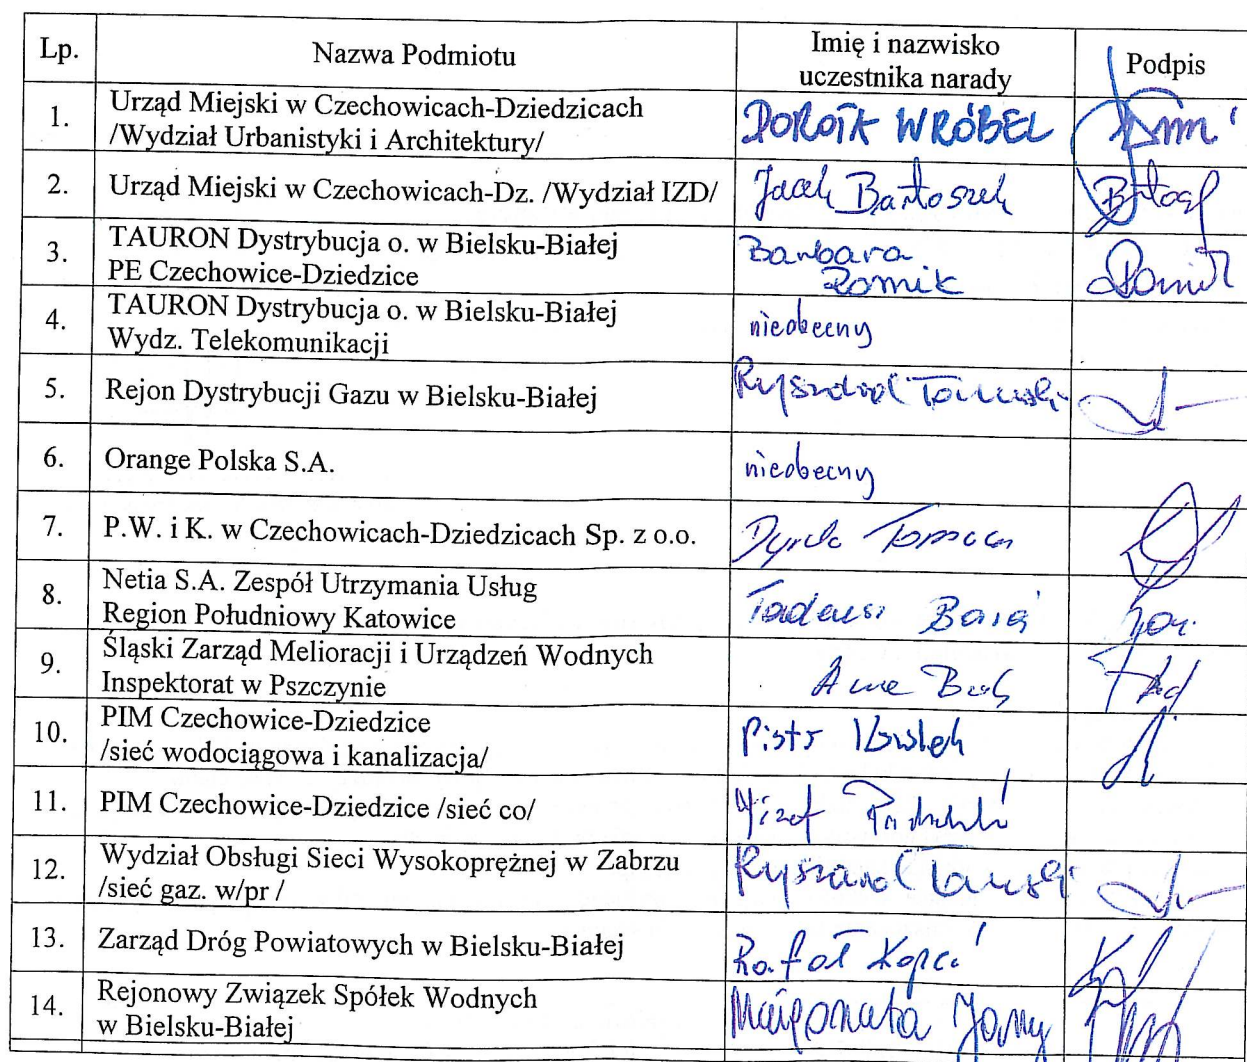 Lp. Nazwa Podmiotu Imię i nazwisko uczestnika narady Podpis
1. Urząd Miejski w Czechowicach-Dziedzicach
/Wydział Urbanistyki i Architektury/ DOROTA WRÓBEL
2. Urząd Miejski w Czechowicach-Dz. /Wydział IZD/ Jacek Bartoszek
3. TAURON Dystrybucja o. w Bielsku-Białej Barbara
PE Czechowice-Dziedzice
4. TAURON Dystrybucja o. w Bielsku-Białej
Wydz. Telekomunikacji nieobecny
5. Rejon Dystrybucji Gazu w Bielsku-Białej Ryszard
6. Orange Polska S.A. nieobecny
7. P.W. i K. w Czechowicach-Dziedzicach Sp. z o.o.
8. Netia S.A. Zespół Utrzymania Usług
Region Południowy Katowice Tadeusz
9. Śląski Zarząd Melioracji i Urządzeń Wodnych
Inspektorat w Pszczynie
10. PIM Czechowice-Dziedzice
/sieć wodociągowa i kanalizacja/ Piotr
11. PIM Czechowice-Dziedzice /sieć co/ Józef
12. Wydział Obsługi Sieci Wysokoprężnej w Zabrzu
/sieć gaz. w/pr / Ryszard
13. Zarząd Dróg Powiatowych w Bielsku-Białej Rafał
14. Rejonowy Związek Spółek Wodnych
w Bielsku-Białej Małgorzata